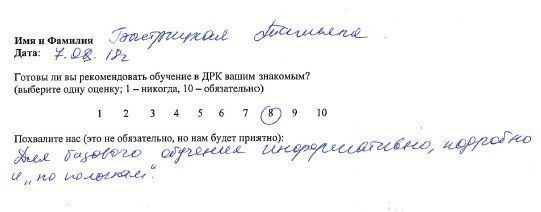 Имя и Фамилия Быстрицкая Татьяна
Дата: 7.08.18г
Готовы ли вы рекомендовать обучение в ДРК вашим знакомым?
(выберите одну оценку; 1 – никогда, 10 – обязательно)
1 2 3 4 5 6 7 8 9 10
Похвалите нас (это не обязательно, но нам будет приятно):
Для базового обучения информативно, подробно
и „по полочкам".